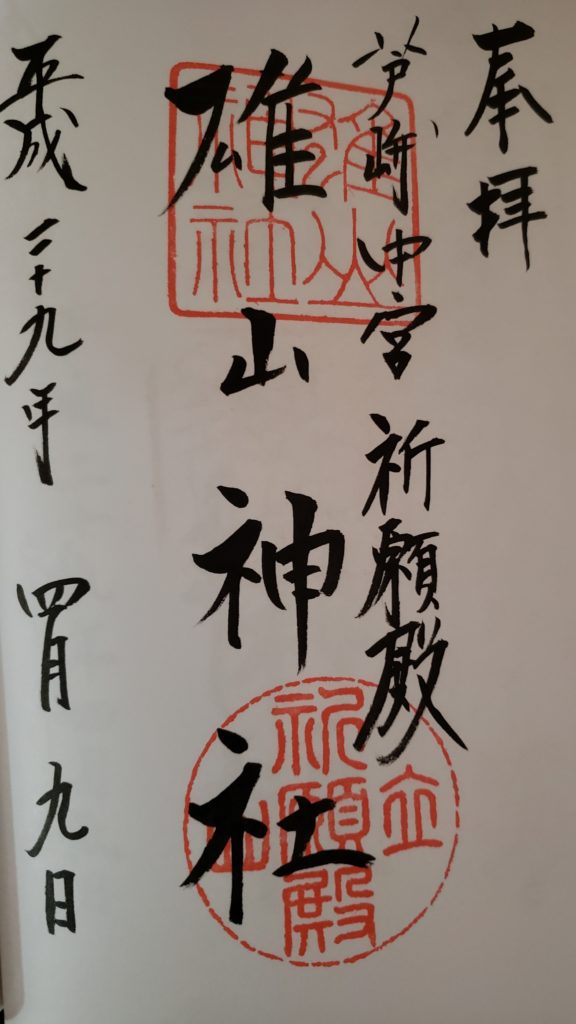 奉拝
芦峅中宮祈願殿
雄山神社
平成二十九年四月九日
雄山神社
立山
祈願殿